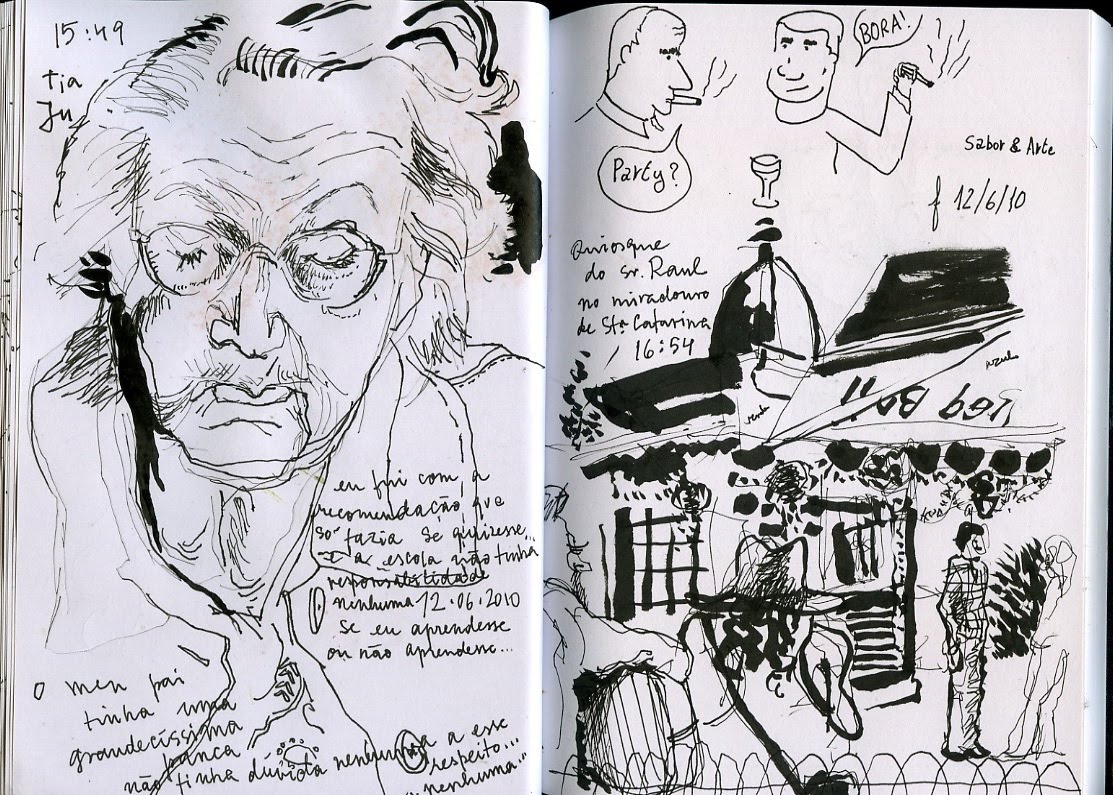 15:49
tia
Ju
eu fui com a
recomendação que
só fazia se quizesse...
e a escola não tinha
responsabilidade
nenhuma 12.06.2010
se eu aprendesse
ou não aprendesse...
O meu pai
tinha uma
grandecíssima
panca
não tinha dúvida nenhuma a esse
respeito...
nenhuma...
BORA!
Party?
Sabor & Arte
12/6/10
Quiosque
do sr. Raul
no miradouro
de Stª Catarina
16:54
azul